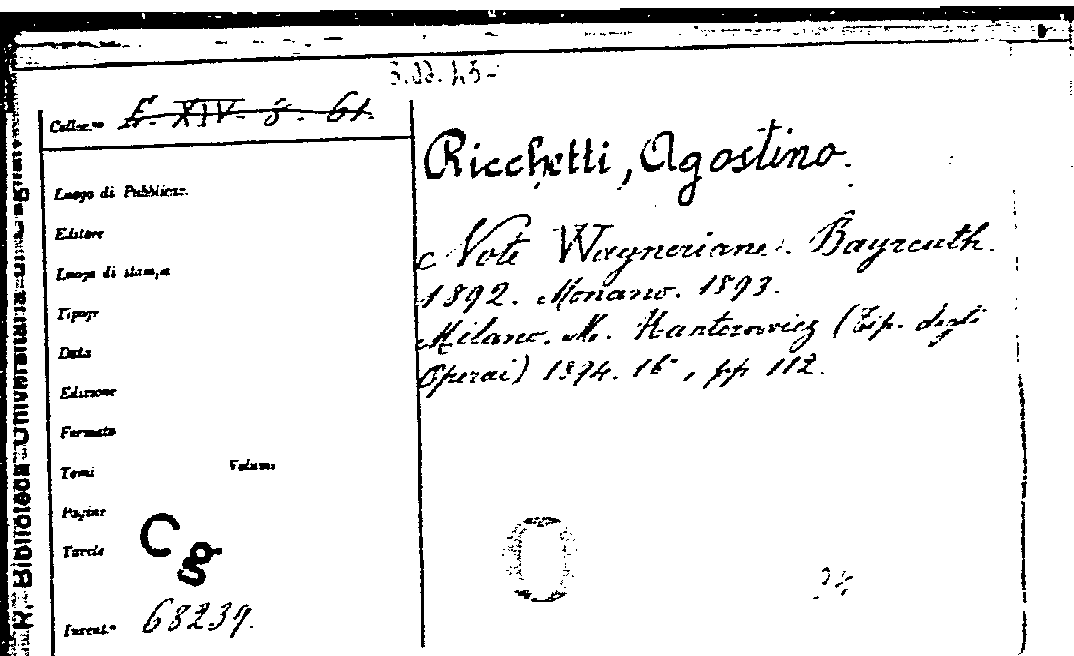 3.DD.45-
Colloc.ne E. XIV. 8. 61.
Ricchetti, Agostino.
Note Wagneriane. Bayreuth.
1892. Monano. 1893.
Milano. M. Kantorowicz (Tip. degli
Operai) 1894. 16°, pp 112.
Luogo di Pubblicaz.
Editore
Luogo di stampa
Tipogr
Data
Edizione
Formato
Tomi Volumi
Pagine
Tavole
Cg
Invent.° 68239.
R. Biblioteca Universitaria